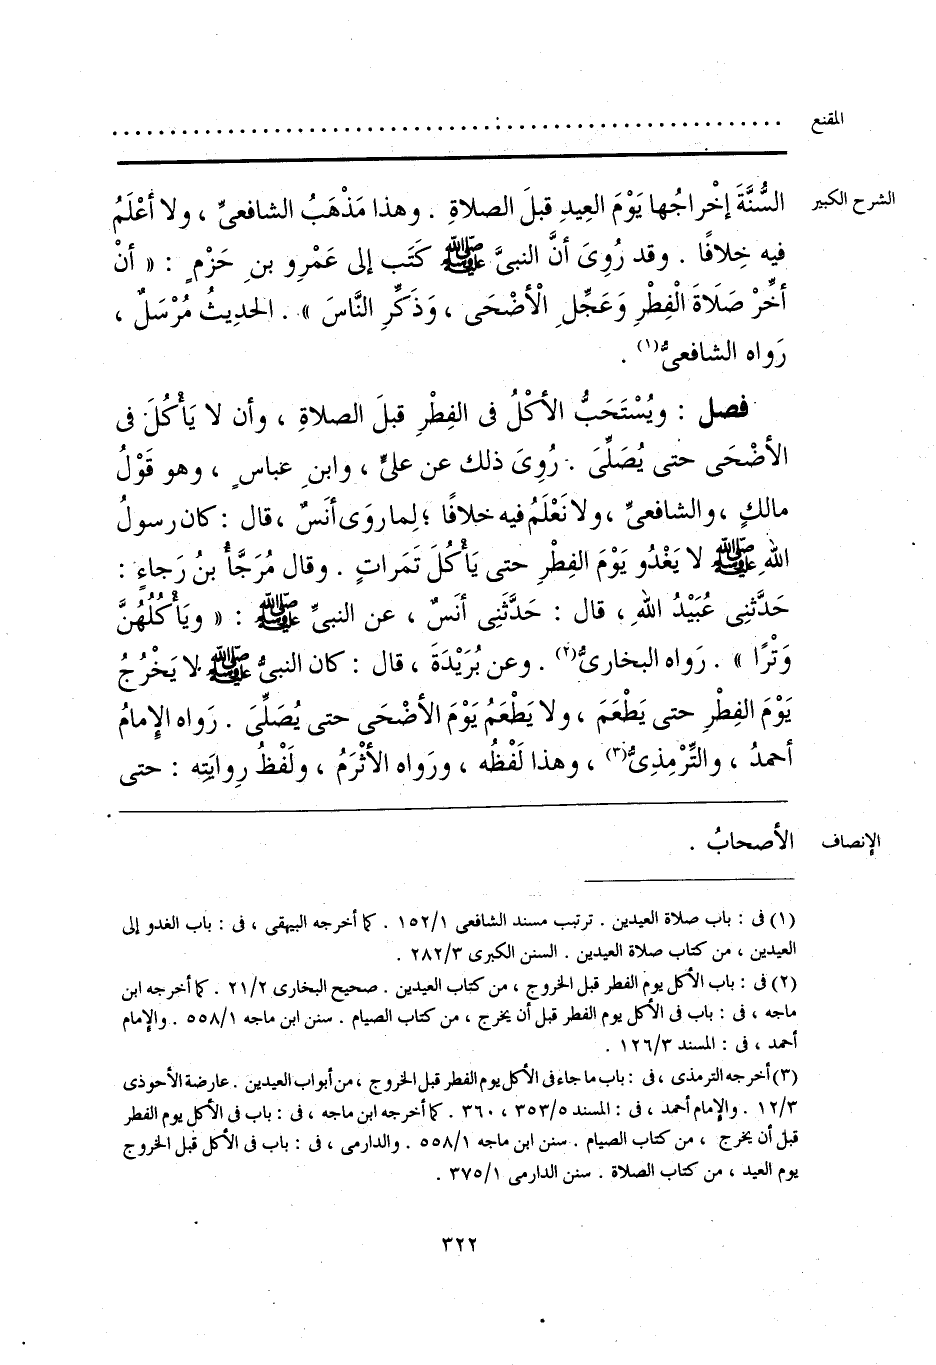 المقنع ................................................................
الشرح الكبير السُّنَّةَ إخْراجُها يَوْمَ العِيدِ قبلَ الصلاةِ . وهذا مَذْهَبُ الشافعىِّ ، ولا أعْلَمُ
فيه خِلافًا . وقد رُوِىَ أنَّ النبىَّ ﷺ كَتَب إلى عَمْرِو بنِ حَزْمٍ : « أنْ
أخِّرْ صَلَاةَ الْفِطْرِ وَعَجِّلِ الْأضْحَى ، وَذَكِّرِ النَّاسَ » . الحديثُ مُرْسَلٌ ،
رَواه الشافعىُّ(١) .
فصل : ويُسْتَحَبُّ الأكْلُ فى الفِطْرِ قبلَ الصلاةِ ، وأن لا يَأْكُلَ فى
الأضْحَى حتى يُصَلِّىَ . رُوِىَ ذلك عن علىٍّ ، وابنِ عباسٍ ، وهو قَوْلُ
مالكٍ ، والشافعىِّ ، ولا نَعْلَمُ فيه خلافًا ؛ لِما رَوَى أنَسٌ ، قال : كان رسولُ
اللهِ ﷺ لا يَغْدُو يَوْمَ الفِطْرِ حتى يَأْكُلَ تَمَراتٍ . وقال مُرَجَّأُ بنُ رَجاءٍ :
حَدَّثَنِى عُبَيْدُ اللهِ ، قال : حَدَّثَنِى أنَسٌ ، عن النبىِّ ﷺ : « ويَأْكُلُهُنَّ
وَتْرًا » . رَواه البخارىُّ(٢) . وعن بُرَيْدَةَ ، قال : كان النبىُّ ﷺ لا يَخْرُجُ
يَوْمَ الفِطْرِ حتى يَطْعَمَ ، ولا يَطْعَمُ يَوْمَ الأضْحَى حتى يُصَلِّىَ . رَواه الإِمامُ
أحمدُ ، والتِّرْمِذِىُّ(٣) ، وهذا لَفْظُه ، ورَواه الأثْرَمُ ، ولَفْظُ رِوايَتِه : حتى
الإنصاف الأصحابُ .
(١) فى : باب صلاة العيدين . ترتيب مسند الشافعى ١٥٢/١ . كما أخرجه البيهقى ، فى : باب الغدو إلى
العيدين ، من كتاب صلاة العيدين . السنن الكبرى ٢٨٢/٣ .
(٢) فى : باب الأكل يوم الفطر قبل الخروج ، من كتاب العيدين . صحيح البخارى ٢١/٢ . كما أخرجه ابن
ماجه ، فى : باب فى الأكل يوم الفطر قبل أن يخرج ، من كتاب الصيام . سنن ابن ماجه ٥٥٨/١ . والإمام
أحمد ، فى : المسند ١٢٦/٣ .
(٣) أخرجه الترمذى ، فى : باب ما جاء فى الأكل يوم الفطر قبل الخروج ، من أبواب العيدين . عارضة الأحوذى
١٢/٣ . والإمام أحمد ، فى : المسند ٣٥٣/٥ ، ٣٦٠ . كما أخرجه ابن ماجه ، فى : باب فى الأكل يوم الفطر
قبل أن يخرج ، من كتاب الصيام . سنن ابن ماجه ٥٥٨/١ . والدارمى ، فى : باب فى الأكل قبل الخروج
يوم العيد ، من كتاب الصلاة . سنن الدارمى ٣٧٥/١ .
٣٢٢